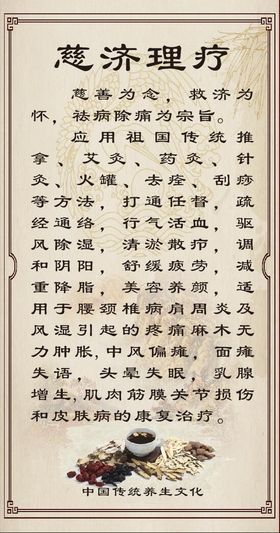 慈济理疗
慈善为念，救济为
怀，祛病除痛为宗旨。
应用祖国传统推
拿、艾灸、药灸、针
灸、火罐、去痊、刮痧
等方法，打通任督，疏
经通络，行气活血，驱
风除湿，清淤散疖，调
和阴阳，舒缓疲劳，减
重降脂，美容养颜，适
用于腰颈椎病肩周炎及
风湿引起的疼痛麻木无
力肿胀，中风偏瘫，面瘫
失语，头晕失眠，乳腺
增生，肌肉筋膜关节损伤
和皮肤病的康复治疗。
中国传统养生文化